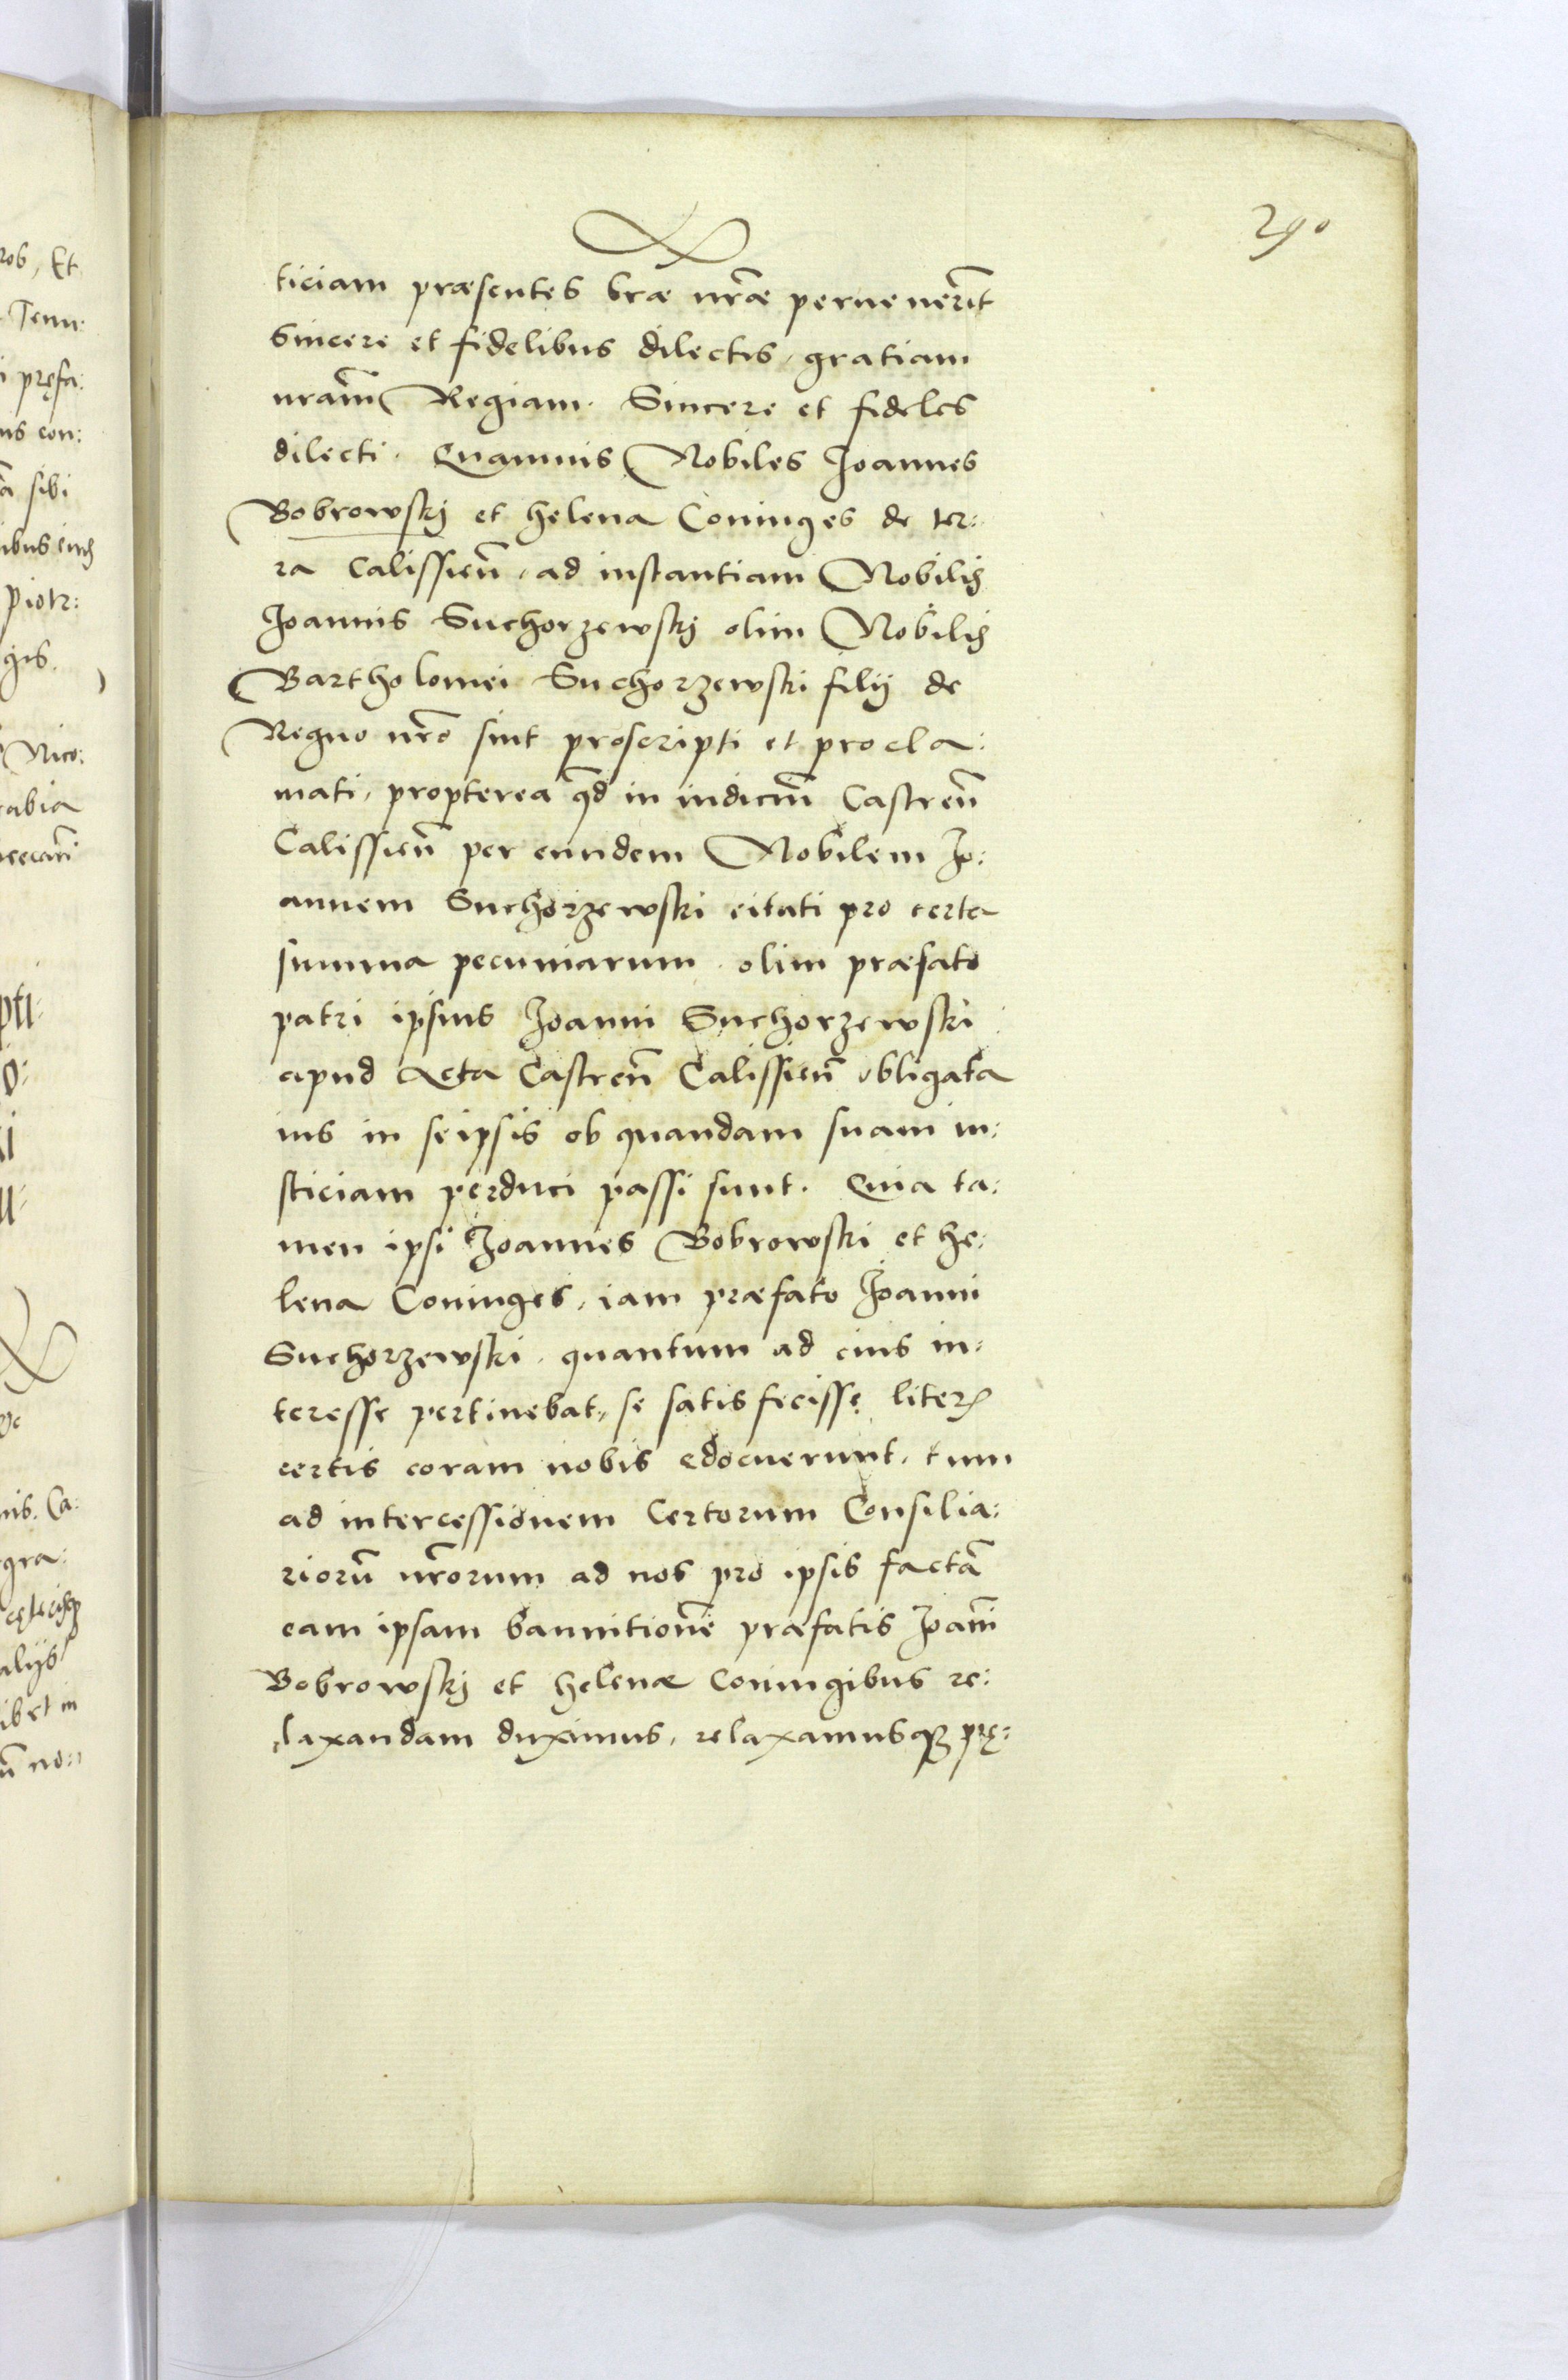 290
ticiam præsentes l̃ræ nr̃æ peruenerĩt
Sincere et fidelibus dilectis, gratiam
nrãm Regiam. Sincere et fideles
dilecti. Quamuis Nobiles Joannes
Bobrowskj et Helena Coniuges de ter:
ra Calissieñ, ad instantiam Nobilis
Joannis Suchorzewskj olim Nobilis
Bartholomei Suchorzewski filij de
Regno nr̃o sint proscripti et procla:
mati, propterea qd̃ in iudiciũ Castreñ
Calissieñ per eundem Nobilem Jo:
annem Suchorzewski citati pro certa
summa pecuniarum, olim præfato
patri ipsius Joanni Suchorzewski
apud Acta Castreñ Calissieñ obligata
ius in seipsis ob quandam suam in:
sticiam perduci passi sunt. Quia ta:
men ipsi Joannes Bobrowski et He:
lena Coniuges, iam præfato Joanni
Suchorzewski, quantum ad eius in:
teresse pertinebat, se satisfecisse literis
certis coram nobis edocuerunt, tum
ad intercessionem Certorum Consilia:
riorũ nr̃orum ad nos pro ipsis factã
eam ipsam bannitionẽ præfatis Joañi
Bobrowskj et Helenæ Coniugibus re:
laxandam duximus, relaxamusqȝ prę: